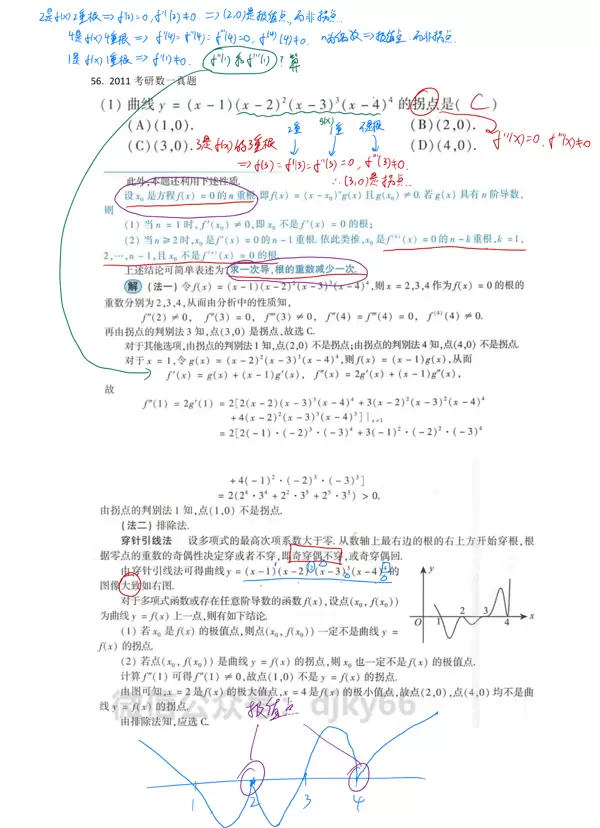 2是f(x)2重根⇒f'(2)=0, f''(2)≠0 ⇒(2,0)是极值点, 而非拐点.
4是f(x)4重根⇒f'(4)=f''(4)=f'''(4)=0, f⁽⁴⁾(4)≠0. n为偶数⇒极值点 而非拐点.
1是f(x)1重根⇒f'(1)≠0. f''(1)和f'''(1)? 算
56. 2011 考研数一真题
(1) 曲线 y = (x − 1)(x − 2)²(x − 3)³(x − 4)⁴ 的拐点是( C )
2重 g(x) 1重 不是根
(A)(1,0). (B)(2,0).
f''(x)=0, f'''(x)≠0
(C)(3,0). 3是f(x)的3重根 (D)(4,0).
⇒f(3)=f'(3)=f''(3)=0, f'''(3)≠0.
∴(3,0)是拐点.
此外,本题还利用下述性质.
设x₀是方程f(x) = 0的n重根,即f(x) = (x − x₀)ⁿg(x)且g(x₀) ≠ 0.若g(x)具有n阶导数,
则
(1) 当n = 1时,f'(x₀) ≠ 0,即x₀不是f'(x) = 0的根;
(2) 当n ≥ 2时,x₀是f'(x) = 0的n − 1重根.依此类推,x₀是f⁽ᵏ⁾(x) = 0的n − k重根,k = 1,
2,⋯,n − 1,且x₀不是f⁽ⁿ⁾(x) = 0的根.
上述结论可简单表述为:求一次导,根的重数减少一次.
解 (法一) 令f(x) = (x − 1)(x − 2)²(x − 3)³(x − 4)⁴,则x = 2,3,4作为f(x) = 0的根的
重数分别为2,3,4,从而由分析中的性质知,
f''(2) ≠ 0, f''(3) = 0, f'''(3) ≠ 0, f''(4) = f'''(4) = 0, f⁽⁴⁾(4) ≠ 0.
再由拐点的判别法3知,点(3,0)是拐点,故选C.
对于其他选项,由拐点的判别法1知,点(2,0)不是拐点;由拐点的判别法4知,点(4,0)不是拐点.
对于x = 1,令g(x) = (x − 2)²(x − 3)³(x − 4)⁴,则f(x) = (x − 1)g(x),从而
f'(x) = g(x) + (x − 1)g'(x), f''(x) = 2g'(x) + (x − 1)g''(x),
故
f''(1) = 2g'(1) = 2[2(x − 2)(x − 3)³(x − 4)⁴ + 3(x − 2)²(x − 3)²(x − 4)⁴
+ 4(x − 2)²(x − 3)³(x − 4)³]|ₓ₌₁
= 2[2(− 1)·(− 2)³·(− 3)⁴ + 3(− 1)²·(− 2)²·(− 3)⁴
+ 4(− 1)²·(− 2)³·(− 3)³]
= 2(2⁴·3⁴ + 2²·3⁵ + 2⁵·3³) > 0.
由拐点的判别法1知,点(1,0)不是拐点.
(法二) 排除法.
穿针引线法 设多项式的最高次项系数大于零.从数轴上最右边的根的右上方开始穿根,根
据零点的重数的奇偶性决定穿或者不穿,即奇穿偶不穿,或奇穿偶回.
由穿针引线法可得曲线y = (x − 1)(x − 2)²(x − 3)³(x − 4)⁴的
图像大致如右图.
y
O 1 2 3 4 x
对于多项式函数或存在任意阶导数的函数f(x),设点(x₀,f(x₀))
为曲线y = f(x)上一点,则有如下结论.
(1) 若x₀是f(x)的极值点,则点(x₀,f(x₀))一定不是曲线y =
f(x)的拐点.
(2) 若点(x₀,f(x₀))是曲线y = f(x)的拐点,则x₀也一定不是f(x)的极值点.
计算f''(1)可得f''(1) ≠ 0,故点(1,0)不是y = f(x)的拐点.
由图可知,x = 2是f(x)的极大值点,x = 4是f(x)的极小值点,故点(2,0),点(4,0)均不是曲
线y = f(x)的拐点.
由排除法知,应选C.
微信公众号: djky66
极值点
1 2 3 4